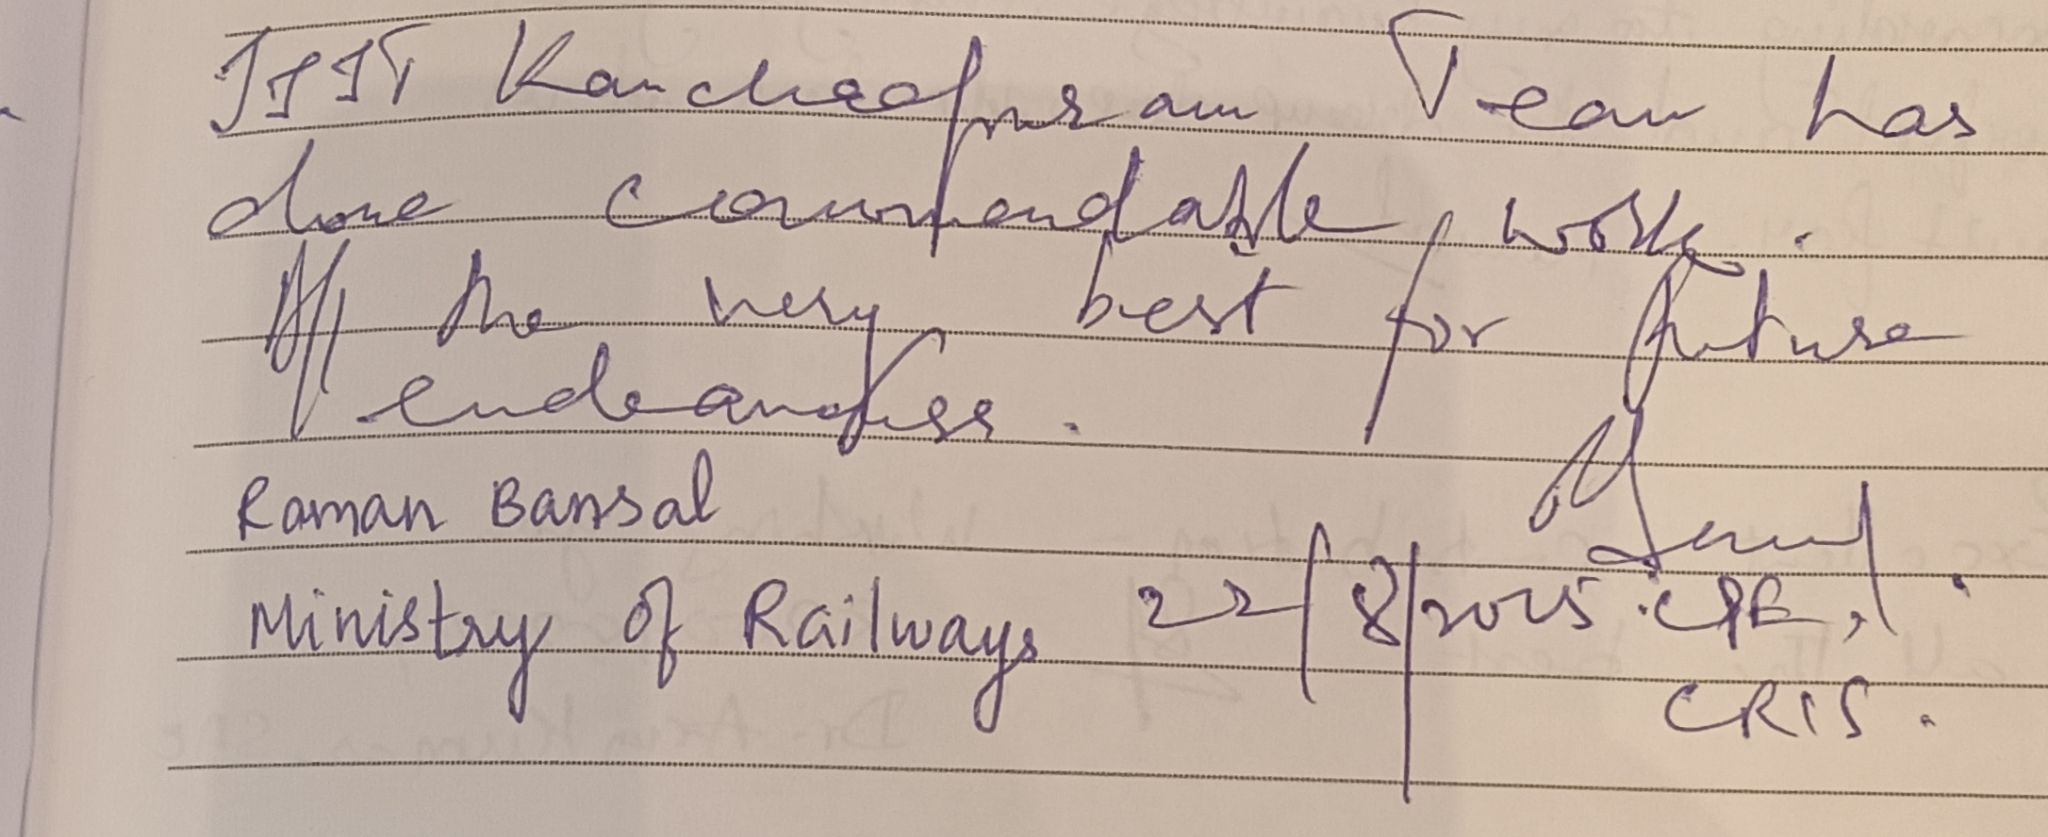 IIIT Kancheepuram Team has
done commendable work.
All the very best for future
endeavours.
Raman Bansal
Ministry of Railways 22/8/2025 CPE,
CRIS.